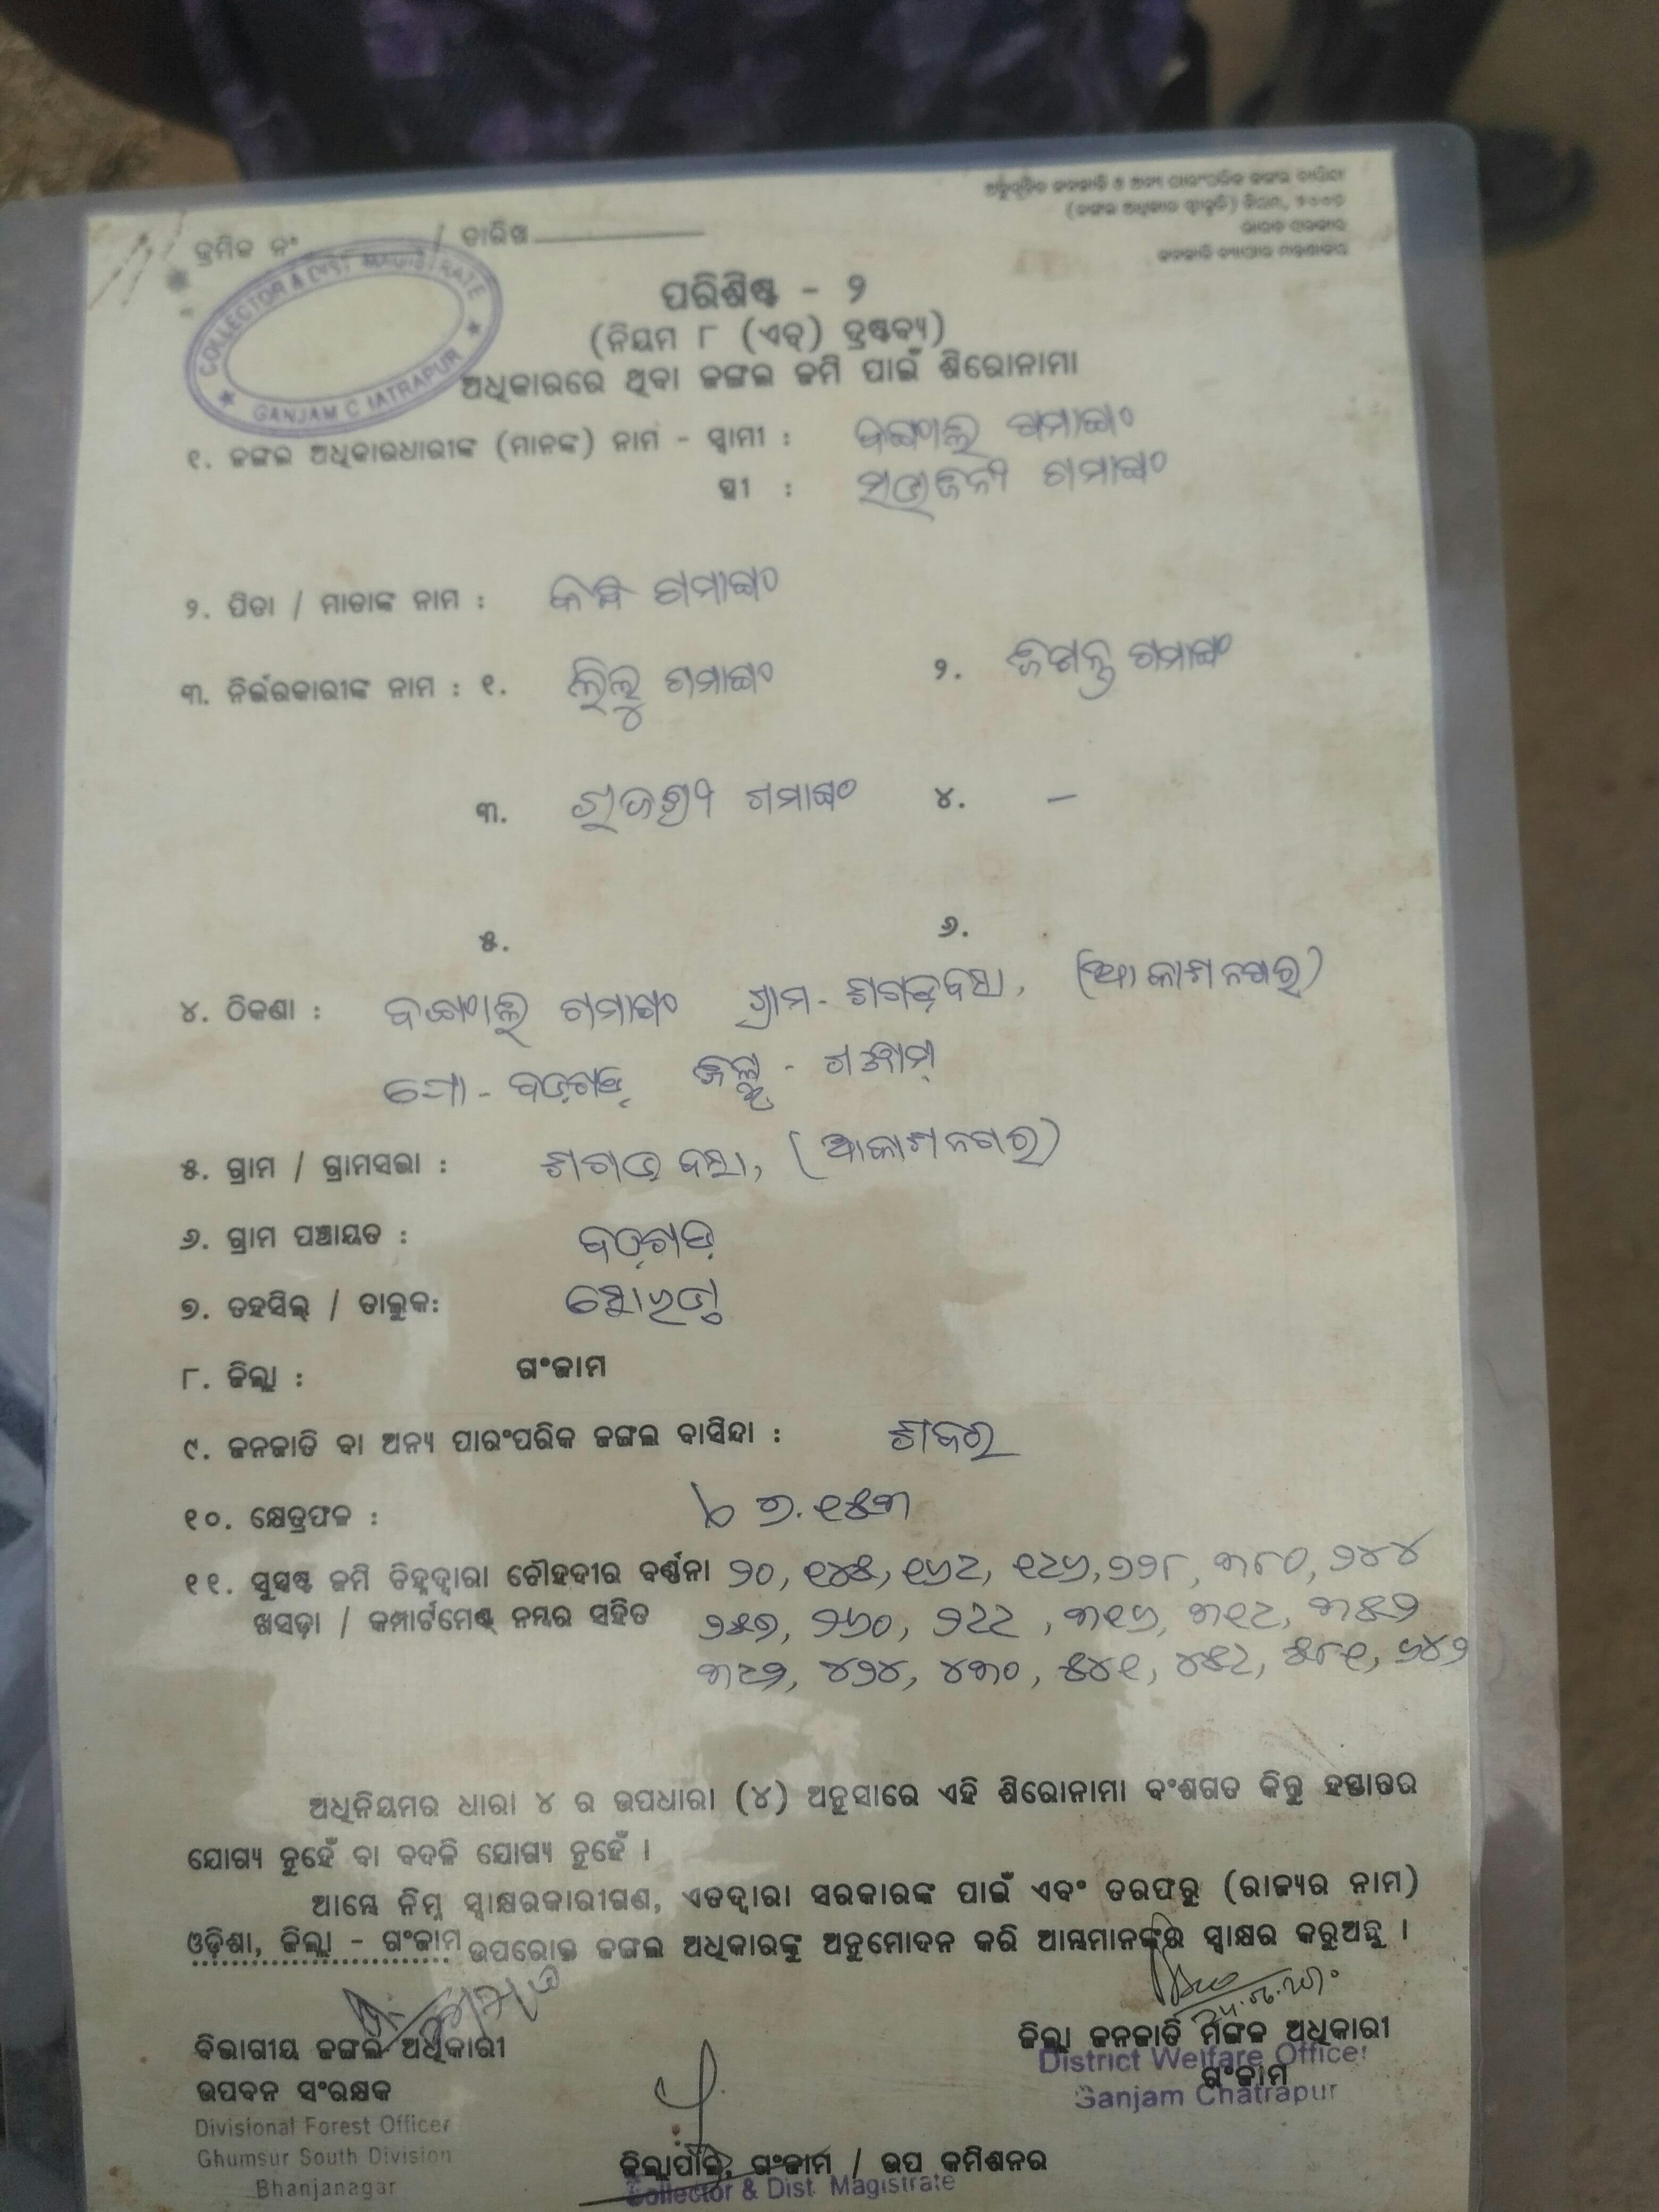 ଅନୁସୂଚିତ ଜନଜାତି ଓ ଅନ୍ୟ ପାରଂପରିକ ଜଙ୍ଗଲ ବାସିନ୍ଦା
(ଜଙ୍ଗଲ ଅଧିକାର ସ୍ୱୀକୃତି) ନିୟମ, ୨୦୦୭
ଭାରତ ସରକାର
ଜନଜାତି ବ୍ୟାପାର ମନ୍ତ୍ରଣାଳୟ
କ୍ରମିକ ନଂ / ତାରିଖ
COLLECTOR & DIST MAGISTRATE
GANJAM CHATRAPUR
ପରିଶିଷ୍ଟ - ୨
(ନିୟମ ୮ (ଏଚ୍) ଦ୍ରଷ୍ଟବ୍ୟ)
ଅଧିକାରରେ ଥିବା ଜଙ୍ଗଲ ଜମି ପାଇଁ ଶିରୋନାମା
୧. ଜଙ୍ଗଲ ଅଧିକାରଧାରୀଙ୍କ (ମାନଙ୍କ) ନାମ - ସ୍ୱାମୀ : ଗମାଙ୍ଗ
ସ୍ତ୍ରୀ : ଗମାଙ୍ଗ
୨. ପିତା / ମାତାଙ୍କ ନାମ : ଗମାଙ୍ଗ
୩. ନିର୍ଭରକାରୀଙ୍କ ନାମ : ୧. ଲିଲୁ ଗମାଙ୍ଗ ୨. ଗମାଙ୍ଗ
୩. ଗମାଙ୍ଗ ୪. –
୫. ୬.
୪. ଠିକଣା : ଗମାଙ୍ଗ ଗ୍ରାମ - (ଆକାଶନଗର)
ପୋ - ବଡ଼ଗଡ଼ ଜିଲ୍ଲା - ଗଞ୍ଜାମ
୫. ଗ୍ରାମ / ଗ୍ରାମସଭା : (ଆକାଶନଗର)
୬. ଗ୍ରାମ ପଞ୍ଚାୟତ : ବଡ଼ଗଡ଼
୭. ତହସିଲ୍ / ତାଲୁକ: ସୋରଡ଼ା
୮. ଜିଲ୍ଲା : ଗଂଜାମ
୯. ଜନଜାତି ବା ଅନ୍ୟ ପାରଂପରିକ ଜଙ୍ଗଲ ବାସିନ୍ଦା : ଶବର
୧୦. କ୍ଷେତ୍ରଫଳ : ୭.୧୫୩
୧୧. ସୁସ୍ପଷ୍ଟ ଜମି ଚିହ୍ନଦ୍ୱାରା ଚୌହଦୀର ବର୍ଣ୍ଣନା ୨୦, ୧୪୫, ୧୬୯, ୧୯୬, ୨୨୮, ୩୮୦, ୨୪୪
ଖସଡ଼ା / କମ୍ପାର୍ଟମେଣ୍ଟ୍ ନମ୍ବର ସହିତ ୨୫୭, ୨୬୦, ୨୯୯, ୩୧୬, ୩୧୯, ୩୫୨
୩୯୨, ୪୨୪, ୪୩୦, ୫୪୧, ୪୫୯, ୫୮୧, ୬୪୨
ଅଧିନିୟମର ଧାରା ୪ ର ଉପଧାରା (୪) ଅନୁସାରେ ଏହି ଶିରୋନାମା ବଂଶଗତ କିନ୍ତୁ ହସ୍ତାନ୍ତର
ଯୋଗ୍ୟ ନୁହେଁ ବା ବଦଳି ଯୋଗ୍ୟ ନୁହେଁ ।
ଆମ୍ଭେ ନିମ୍ନ ସ୍ୱାକ୍ଷରକାରୀଗଣ, ଏତଦ୍ୱାରା ସରକାରଙ୍କ ପାଇଁ ଏବଂ ତରଫରୁ (ରାଜ୍ୟର ନାମ)
ଓଡ଼ିଶା, ଜିଲ୍ଲା - ଗଂଜାମ ଉପରୋକ୍ତ ଜଙ୍ଗଲ ଅଧିକାରଙ୍କୁ ଅନୁମୋଦନ କରି ଆମ୍ଭମାନଙ୍କର ସ୍ୱାକ୍ଷର କରୁଅଛୁ ।
ବିଭାଗୀୟ ଜଙ୍ଗଲ ଅଧିକାରୀ
ଉପବନ ସଂରକ୍ଷକ
Divisional Forest Officer
Ghumsur South Division
Bhanjanagar
ଜିଲ୍ଲା ଜନଜାତି ମଙ୍ଗଳ ଅଧିକାରୀ
District Welfare Officer
ଗଂଜାମ
Ganjam Chatrapur
ଜିଲ୍ଲାପାଳ, ଗଂଜାମ / ଉପ କମିଶନର
Collector & Dist. Magistrate